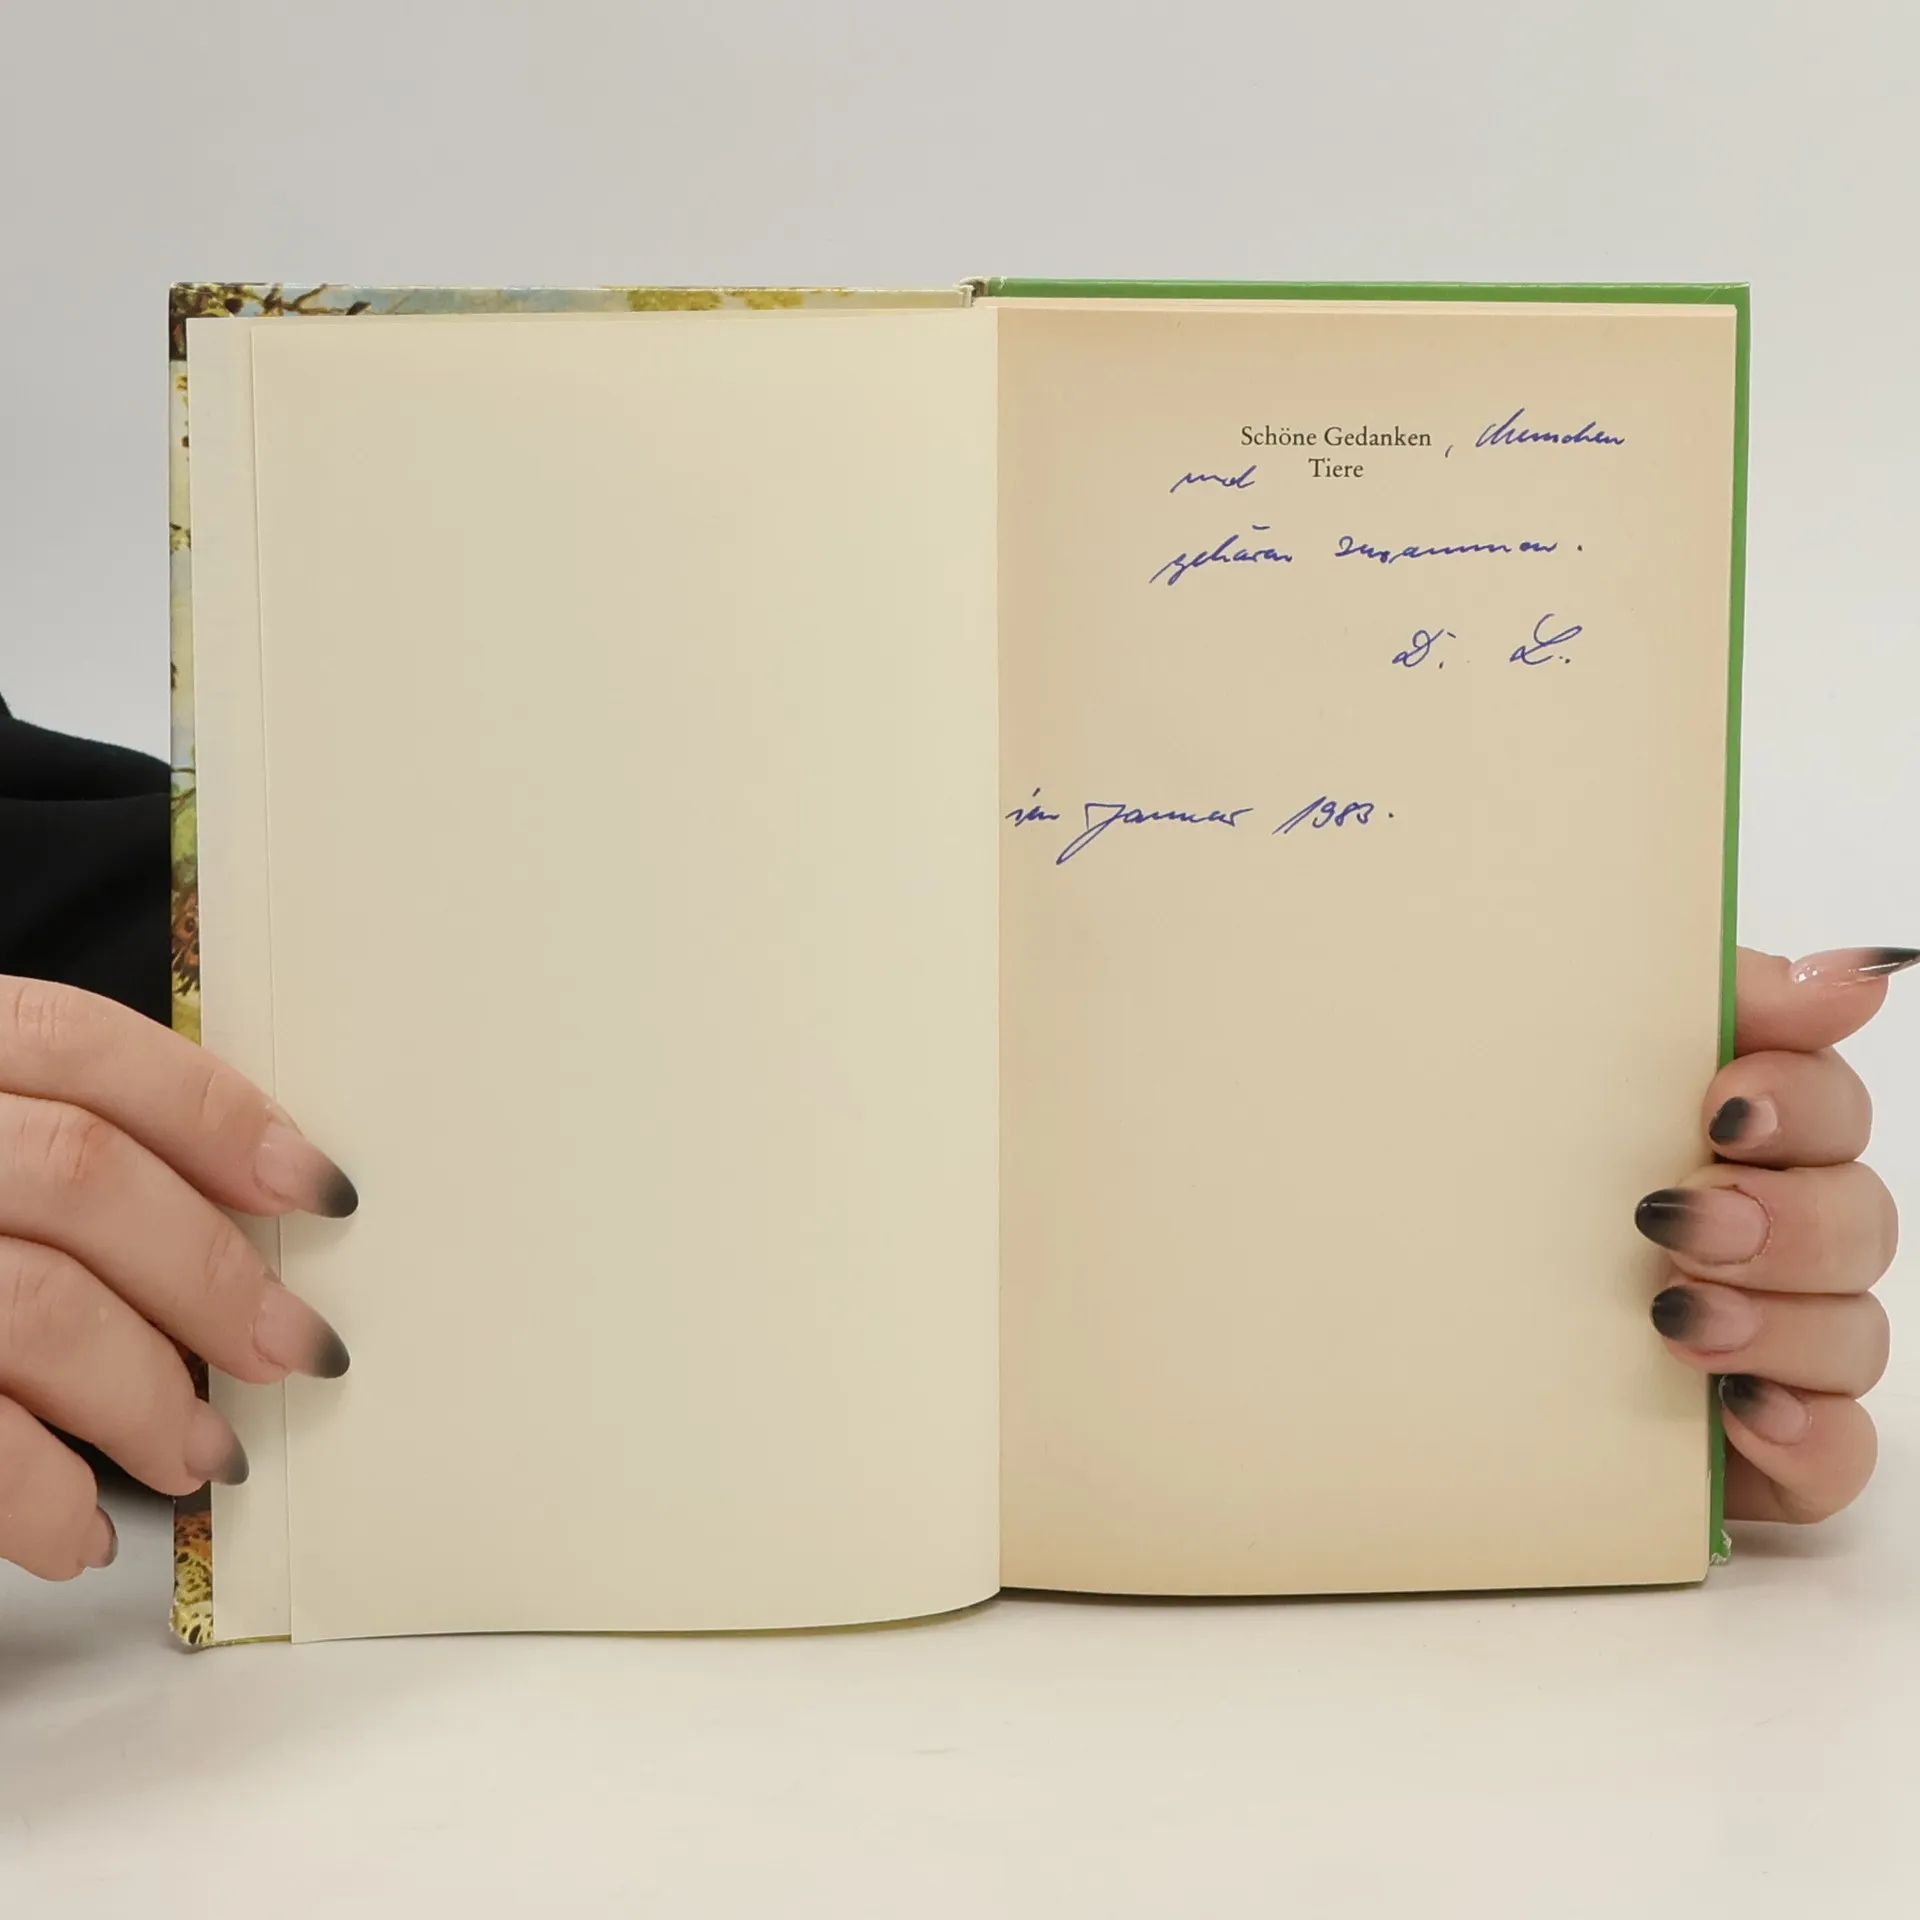 Schöne Gedanken, Menschen
und Tiere
gehören zusammen.
D. L.
im Januar 1983.